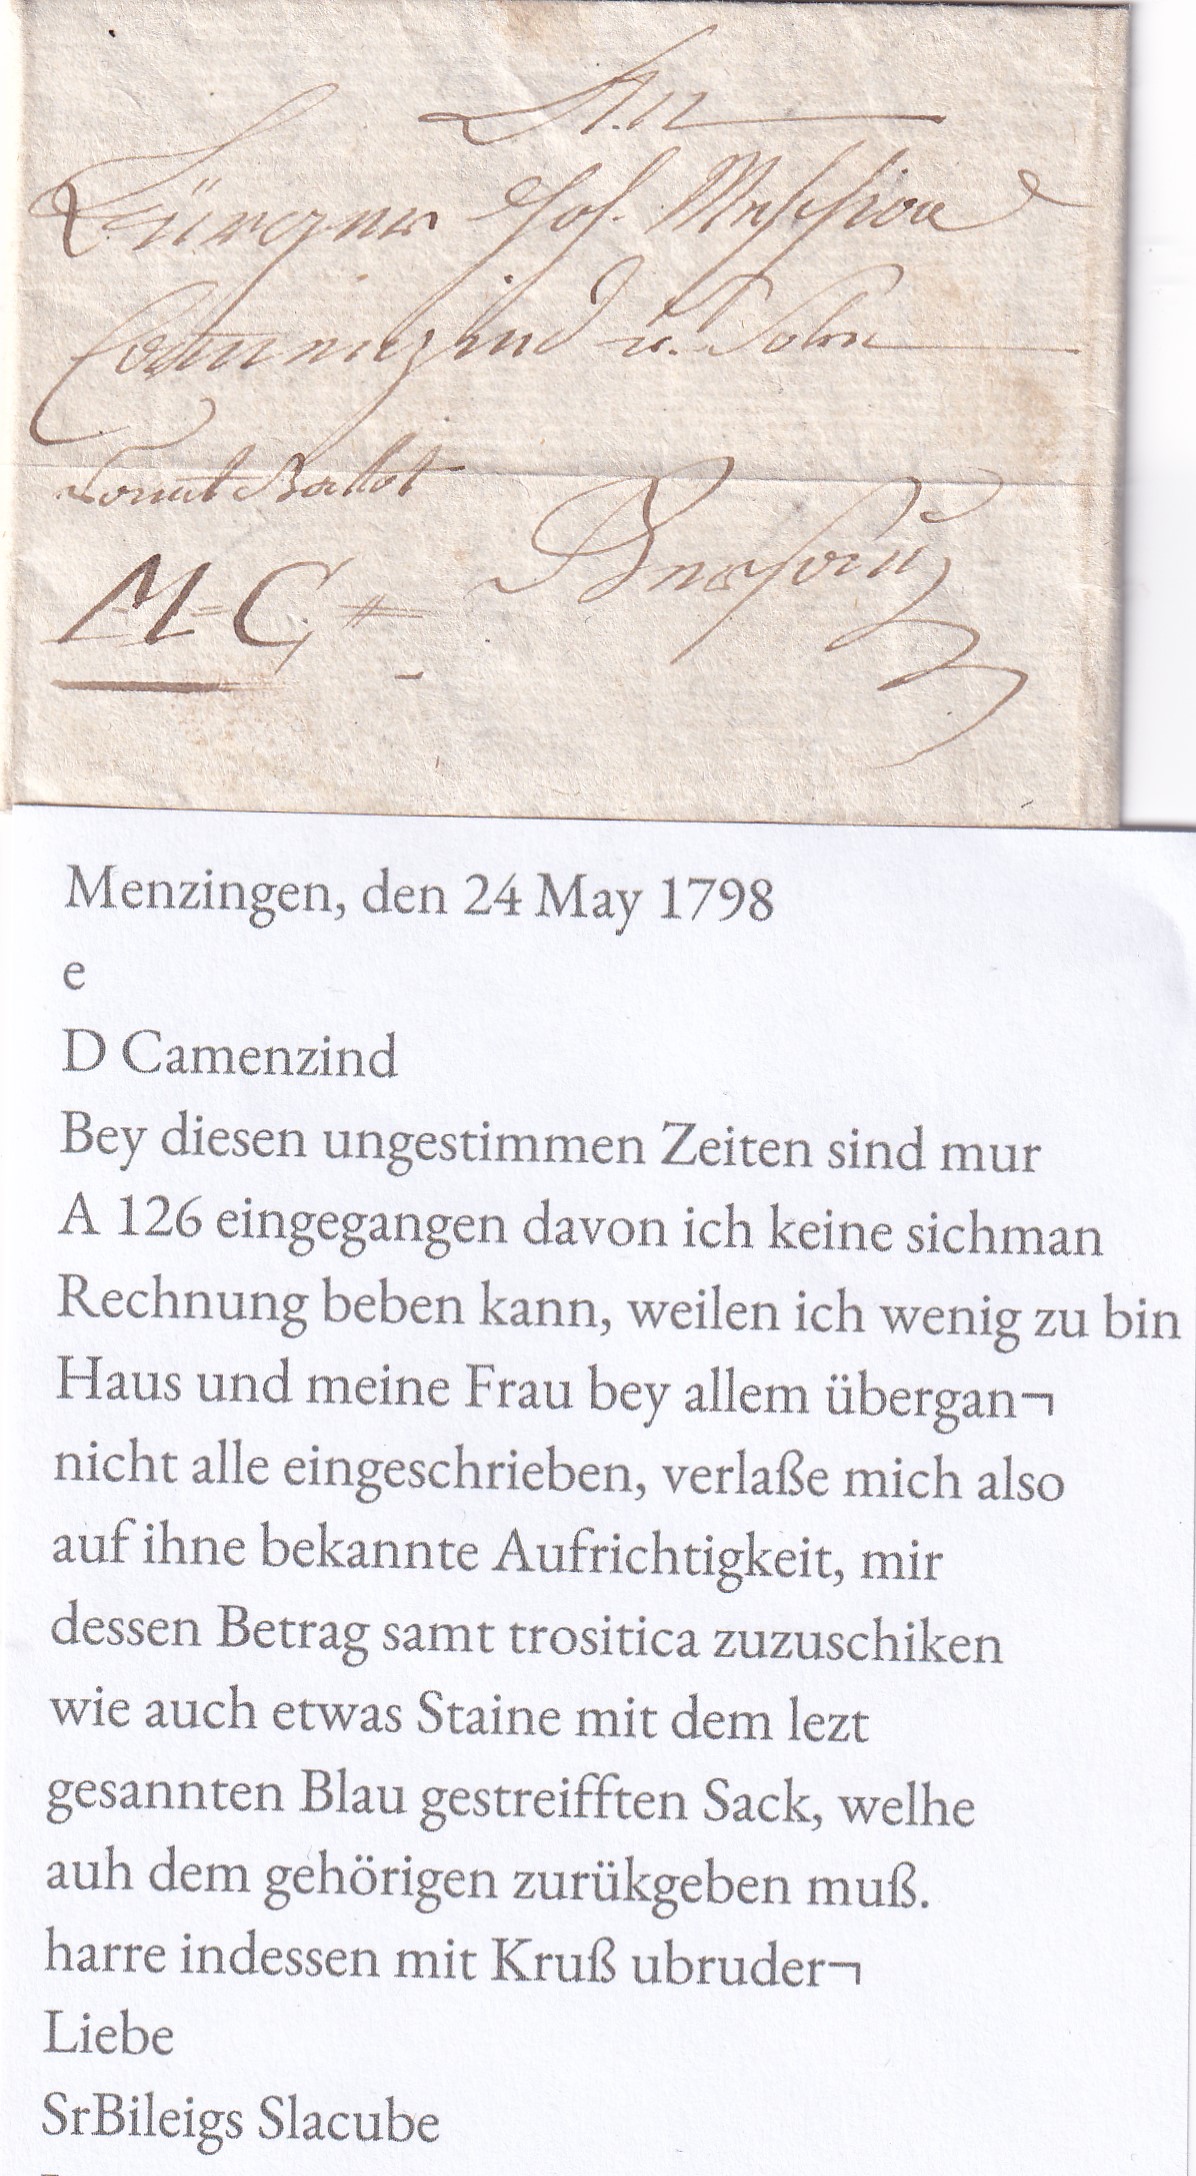 An
Bürger Jos. Maschion
Camenzind u. Sohn
Sammt Ballot
M=C
Gersau
Menzingen, den 24 May 1798
e
D Camenzind
Bey diesen ungestimmen Zeiten sind mur
A 126 eingegangen davon ich keine sichman
Rechnung beben kann, weilen ich wenig zu bin
Haus und meine Frau bey allem übergan¬
nicht alle eingeschrieben, verlaße mich also
auf ihne bekannte Aufrichtigkeit, mir
dessen Betrag samt trositica zuzuschiken
wie auch etwas Staine mit dem lezt
gesannten Blau gestreifften Sack, welhe
auh dem gehörigen zurükgeben muß.
harre indessen mit Kruß ubruder¬
Liebe
SrBileigs Slacube